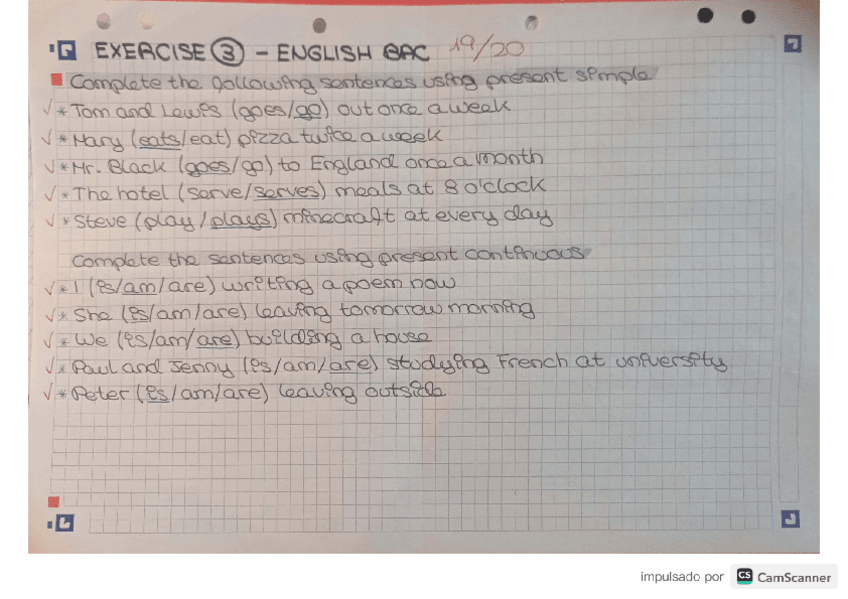 EXERCISE ③ - ENGLISH BAC 19/20
Complete the following sentences using present simple
✓ * Tom and Lewis (goes/go) out once a week
✓ * Mary (eats/eat) pizza twice a week
✓ * Mr. Black (goes/go) to England once a month
✓ * The hotel (serve/serves) meals at 8 o'clock
✓ * Steve (play/plays) minecraft at every day
Complete the sentences using present continuous
✓ * I (is/am/are) writing a poem now
✓ * She (is/am/are) leaving tomorrow morning
✓ * We (is/am/are) building a house
✓ * Paul and Jenny (is/am/are) studying French at university
✓ * Peter (is/am/are) leaving outside
impulsado por CS CamScanner